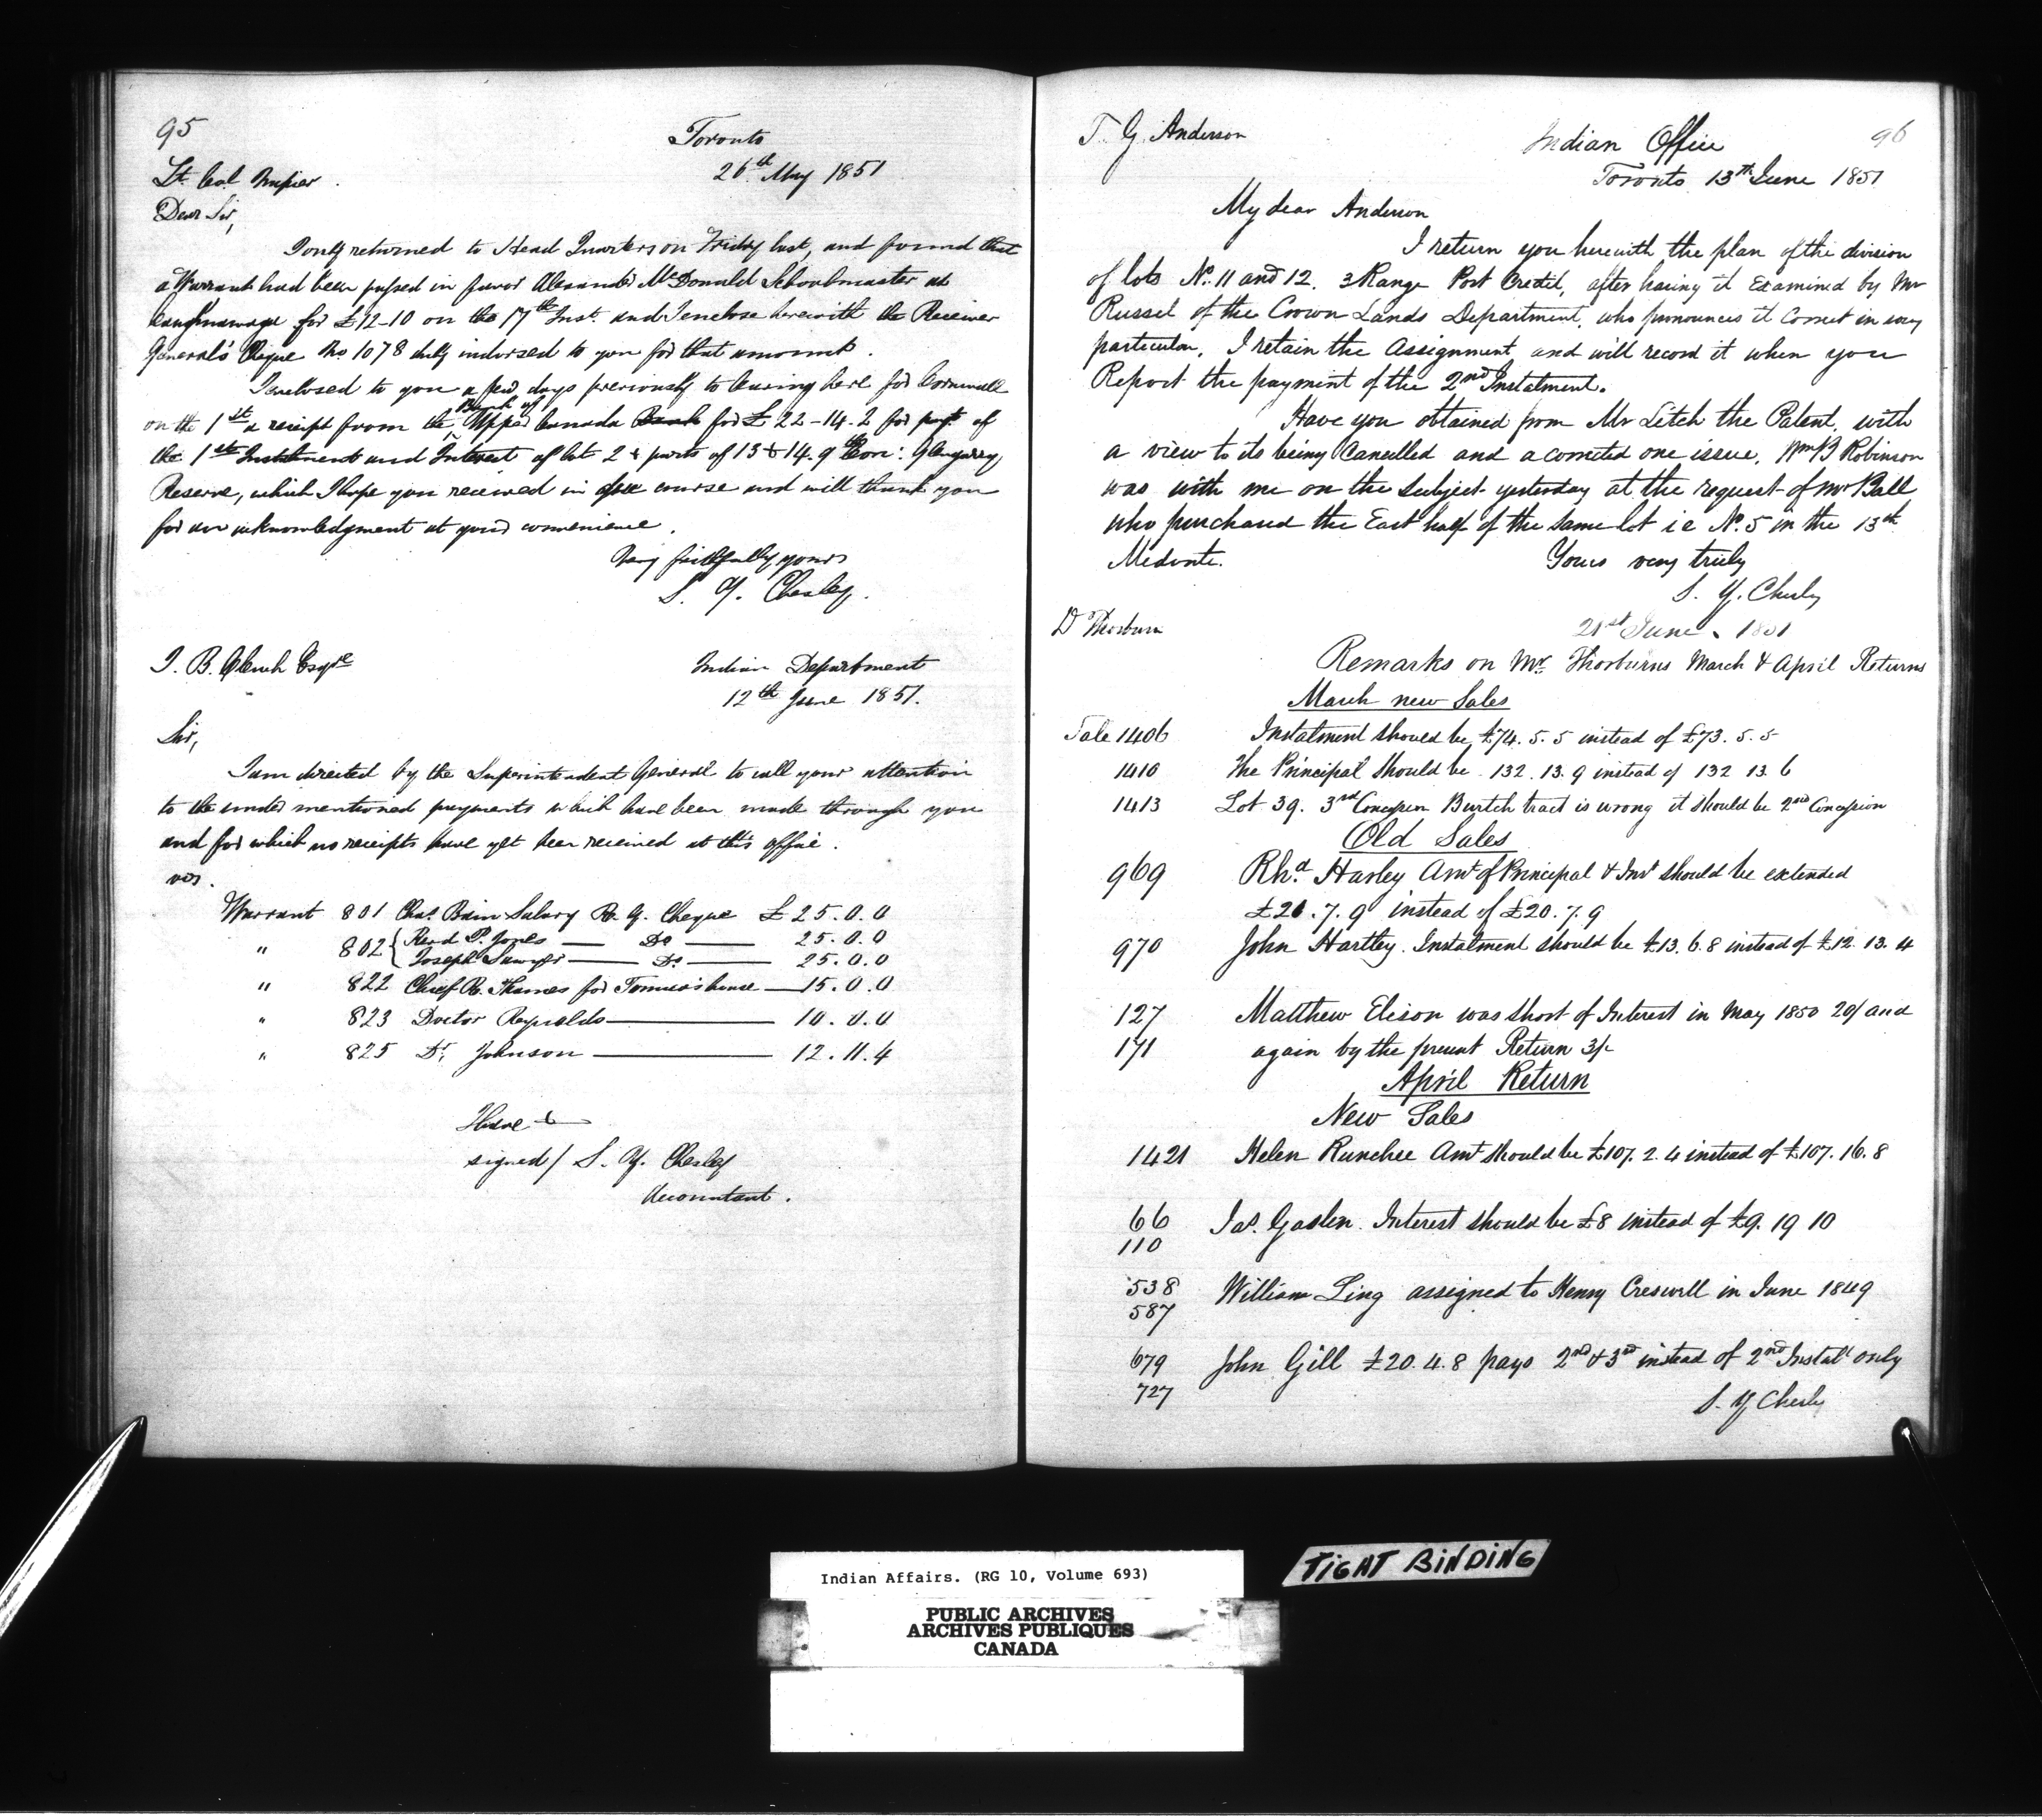 95
Toronto
26th May 1851
Lt. Col Napier.
Dear Sir,
I only returned to Head Quarters on Friday last, and found that
a Warrant had been passed in favor Alexander McDonald Schoolmaster at
Caughnawaga for £12-10 on the 17th Inst. and I enclose herewith the Receiver
General's Cheque No. 1078 duly indorsed to you for that amount.
I enclosed to you a few days previously to leaving here for Cornwall
on the 1st a receipt from the Bank of Upper Canada Bank for £22-14-2 for part of
the 1st Instalment and Interest of lot 2 & parts of 13 & 14. 9th Con: Glengarry
Reserve, which I hope you received in due course and will thank you
for an acknowledgment at your convenience.
Very faithfully yours
S. Y. Chesley.
J. B. Clench Esqre
Indian Department
12th June 1851.
Sir,
I am directed by the Superintendent General to call your attention
to the under mentioned payments which have been made through you
and for which no receipts have yet been received at this office.
viz.
Warrant 801 Chas. Bain Salary R. G. Cheque £25.0.0
" 802 { Revd P. Jones — Do — 25.0.0
Joseph Sawyer — Do — 25.0.0
" 822 Chief R. Thames for house — 15.0.0
" 823 Doctor Reynolds — 10.0.0
" 825 Dr. Johnson — 12.11.4
I have &
signed/ S. Y. Chesley
Accountant.
T. G. Anderson
Indian Office
96
Toronto 13th June 1851
My dear Anderson
I return you herewith the plan of the division
of lots No. 11 and 12. 3 Range Port Credit, after having it Examined by Mr
Russel of the Crown Lands Department, who pronounces it Correct in every
particular. I retain the Assignment and will record it when you
Report the payment of the 2nd Instalment.
Have you obtained from Mr Litch the Patent, with
a view to its being Cancelled and a corrected one issue. Wm B Robinson
was with me on the subject yesterday at the request of Mr Ball
who purchased the East half of the same lot i e No. 5 in the 13th
Medonte.
Yours very truly
S. Y. Chesley
D Thorburn
21st June. 1851
Remarks on Mr. Thorburns March & April Returns
March new Sales
Sale 1406 Instalment should be £74. 5. 5 instead of £73. 5. 5
1410 The Principal should be 132. 13. 9 instead of 132 13. 6
1413 Lot 39. 3rd Concession Burtch tract is wrong it should be 2nd Concession
Old Sales
969 Rhd. Harley Amt of Principal & Int should be extended
£21.7.9 instead of £20.7.9
970 John Hartley. Instalment should be £13. 6. 8 instead of £12. 13. 4
127 Matthew Elison was short of Interest in May 1850 20/ and
171 again by the present Return 3/-
April Return
New Sales
1421 Helen Runchee Amt should be £107. 2. 4 instead of £107. 16. 8
66 Jas. Gaslen. Interest should be £8 instead of £9. 19 10
110
538 William Ling assigned to Henry Creswell in June 1849
587
679 John Gill £20. 4. 8 pays 2nd & 3rd instead of 2nd Instalt only
727
S. Y Chesley
TIGHT BINDING
Indian Affairs. (RG 10, Volume 693)
PUBLIC ARCHIVES
ARCHIVES PUBLIQUES
CANADA